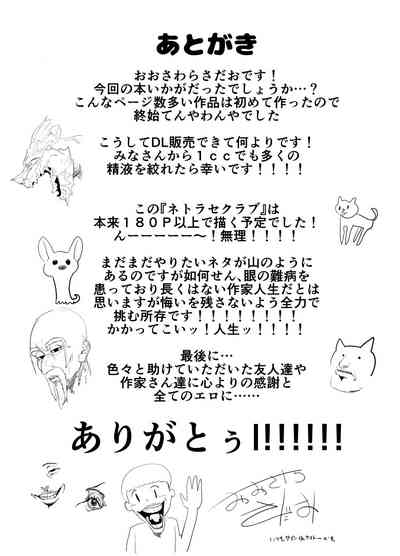 あとがき
おおさわらさだおです!
今回の本いかがだったでしょうか…?
こんなページ数多い作品は初めて作ったので
終始てんやわんやでした
こうしてDL販売できて何よりです!
みなさんから1ccでも多くの
精液を絞れたら幸いです!!!!
この『ネトラセクラブ』は
本来180P以上で描く予定でした!
んーーーーー〜!無理!!!!
まだまだやりたいネタが山のように
あるのですが如何せん、眼の難病を
患っており長くはない作家人生だとは
思いますが悔いを残さないよう全力で
挑む所存です!!!!!!!!
かかってこいッ!人生ッ!!!!
最後に…
色々と助けていただいた友人達や
作家さん達に心よりの感謝と
全てのエロに……
ありがとぅ!!!!!!!